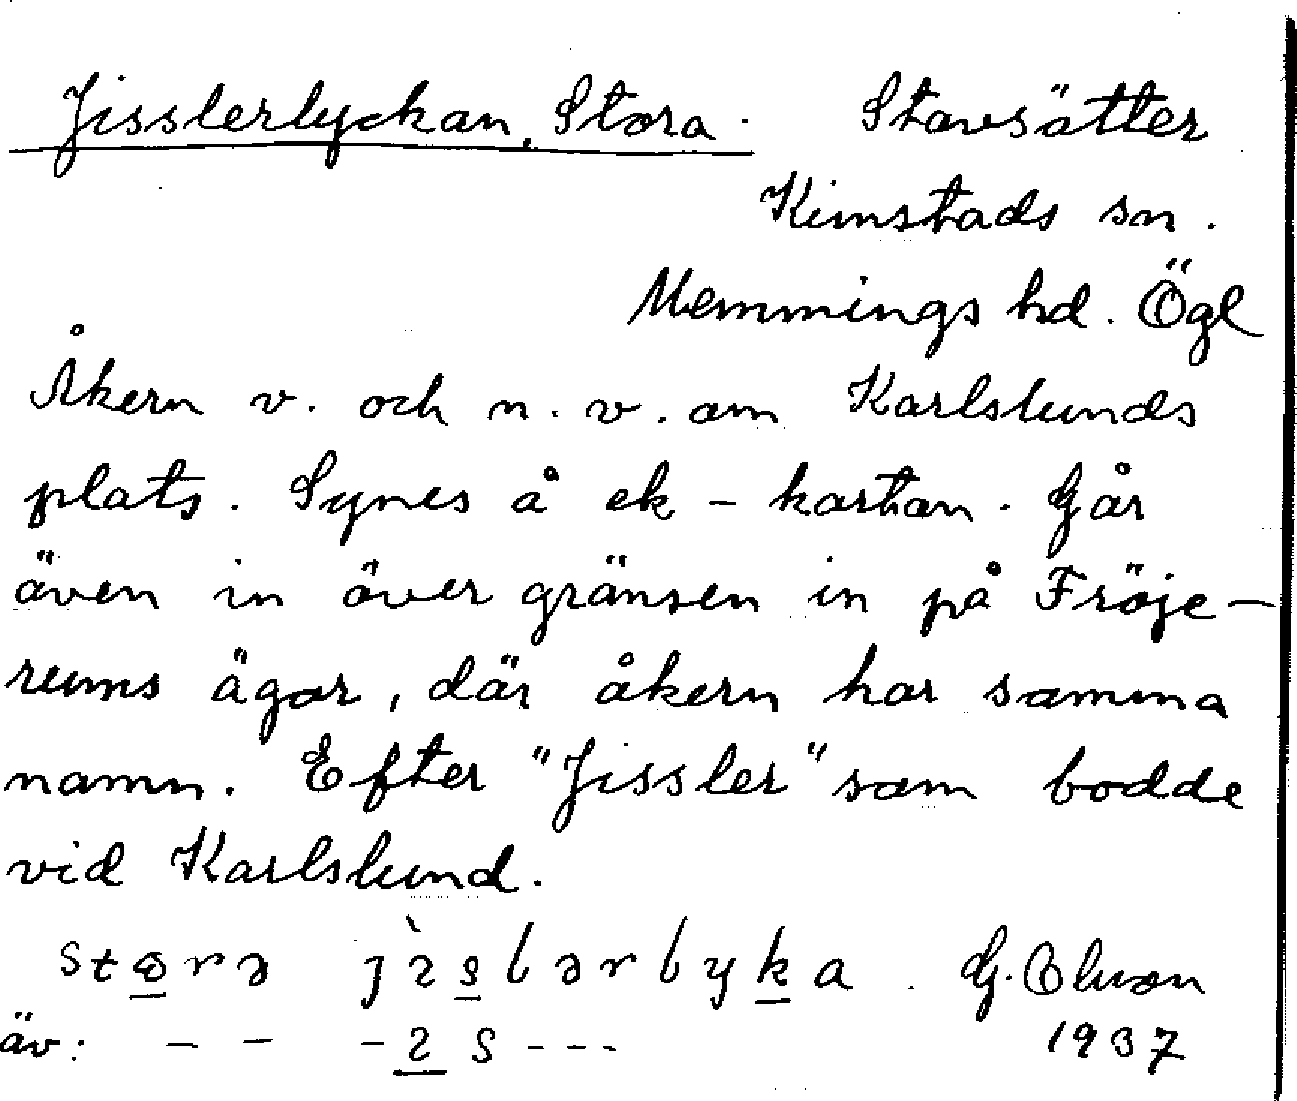 Jisslerlyckan, Stora. Stavsätter
Kimstads sn.
Memmings hd. Ögl
Åkern v. och n.v. om Karlslunds
plats. Synes å ek-kartan. Går
även in över gränsen in på Fröje-
rums ägor, där åkern har samma
namn. Efter "Jissler" som bodde
vid Karlslund.
G. Olson
äv: 1937